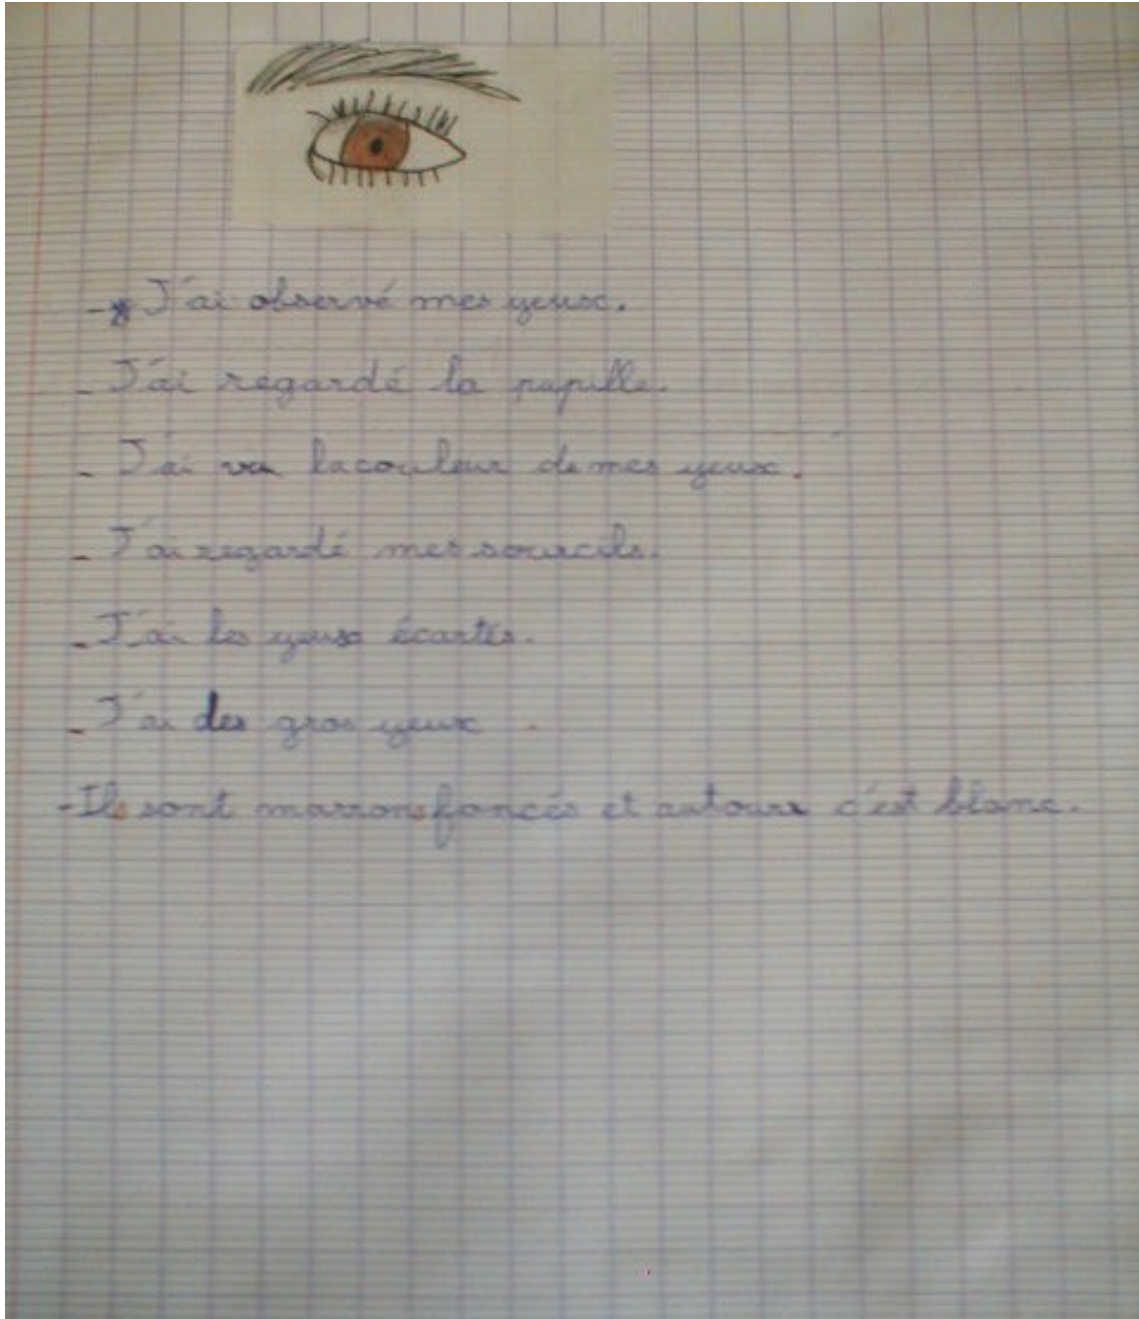 - J'ai observé mes yeux.
- J'ai regardé la pupille.
- J'ai vu la couleur de mes yeux.
- J'ai regardé mes sourcils.
- J'ai les yeux écartés.
- J'ai des gros yeux.
- Ils sont marrons foncés et autour c'est blanc.